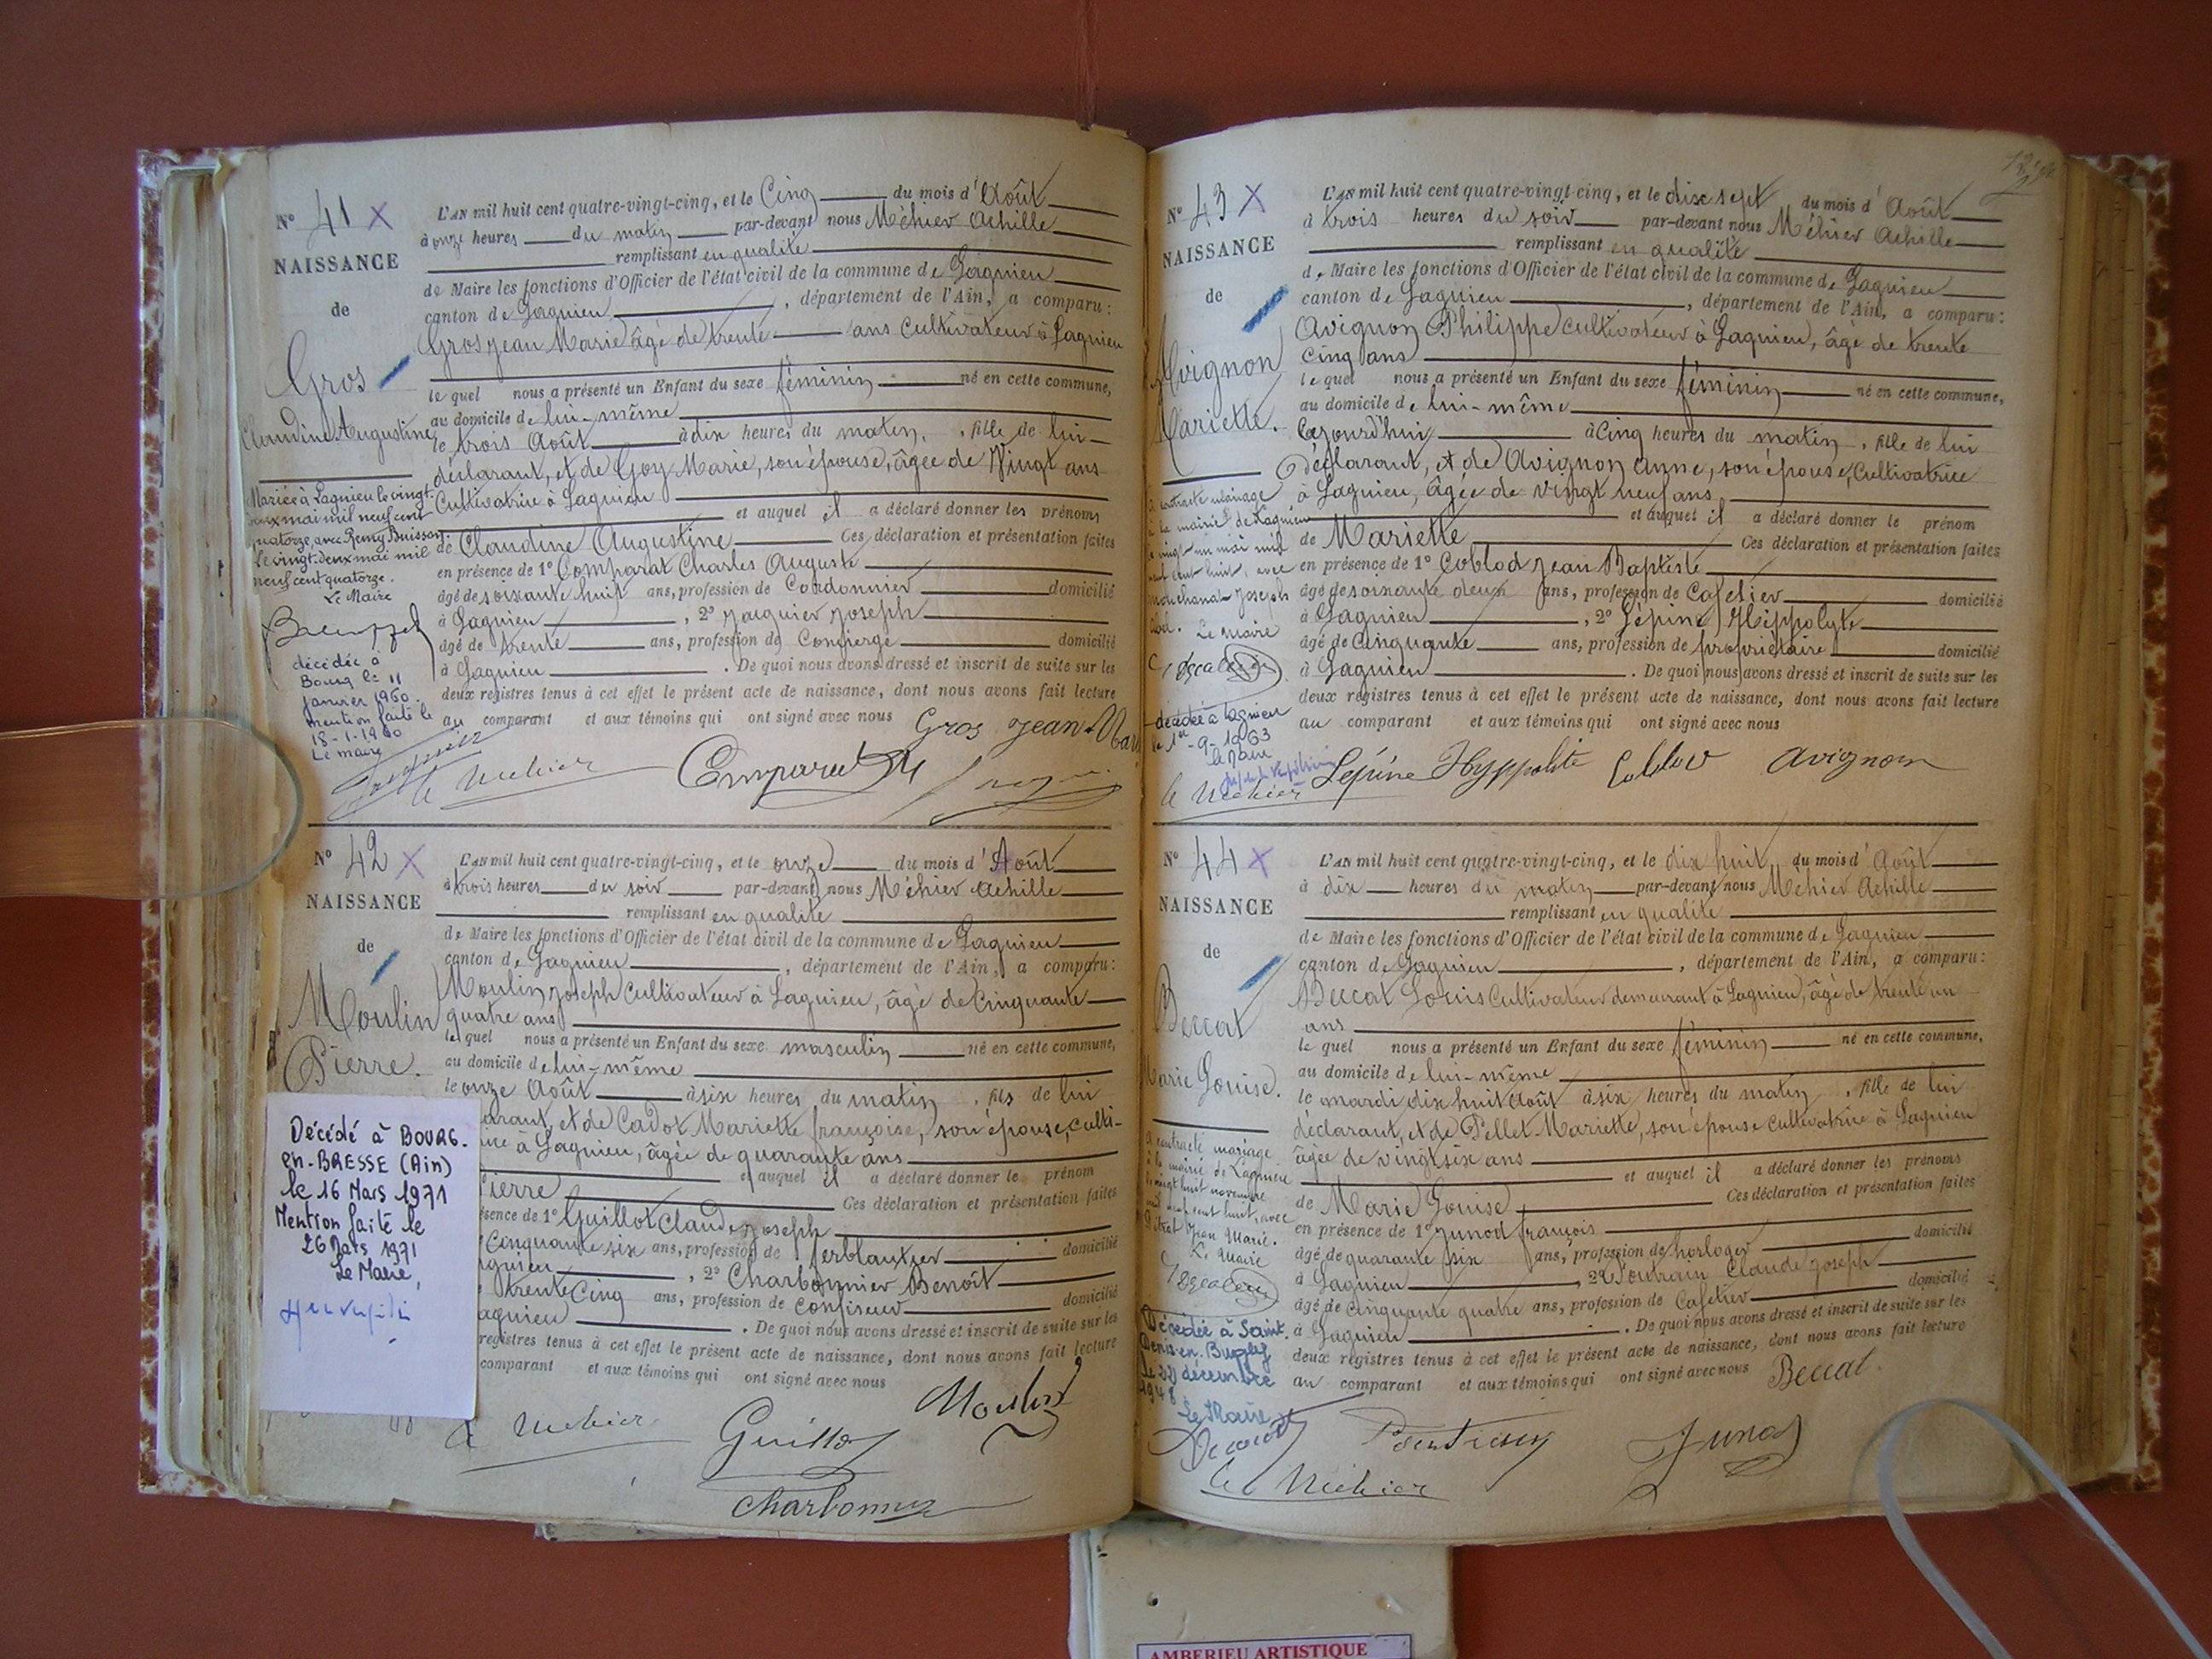 N° 41 X
NAISSANCE
de
Gros
Claudine Augustine
L'AN mil huit cent quatre-vingt-cinq, et le Cinq du mois d'Août
à onze heures du matin par-devant nous Méhier Achille
remplissant en qualité
de Maire les fonctions d'Officier de l'état civil de la commune de Lagnieu
canton de Lagnieu, département de l'Ain, a comparu:
Gros Jean Marie âgé de trente ans Cultivateur à Lagnieu
le quel nous a présenté un Enfant du sexe féminin né en cette commune,
au domicile de lui-même
le trois Août à dix heures du matin, fille de lui
déclarant, et de Goy Marie, son épouse, âgée de Vingt ans
Cultivatrice à Lagnieu
et auquel il a déclaré donner les prénoms
de Claudine Augustine Ces déclaration et présentation faites
en présence de 1° Comparat Charles Auguste
âgé de soixante huit ans, profession de Cordonnier domicilié
à Lagnieu, 2° Jacquier Joseph
âgé de trente ans, profession de Concierge domicilié
à Lagnieu. De quoi nous avons dressé et inscrit de suite sur les
deux registres tenus à cet effet le présent acte de naissance, dont nous avons fait lecture
au comparant et aux témoins qui ont signé avec nous
Gros Jean Mar
Mariée à Lagnieu le vingt
deux mai mil neuf cent
quatorze, avec Remy Buisson
Le vingt-deux mai mil
neuf cent quatorze.
Le Maire
décédée à
Bourg le 11
janvier 1960.
mention faite le
18-1-1960
Le maire
A Méhier
Comparat
N° 42 X
NAISSANCE
de
Moulin
Pierre.
L'AN mil huit cent quatre-vingt-cinq, et le onze du mois d'Août
à trois heures du soir par-devant nous Méhier Achille
remplissant en qualité
de Maire les fonctions d'Officier de l'état civil de la commune de Lagnieu
canton de Lagnieu, département de l'Ain, a comparu:
Moulin Joseph Cultivateur à Lagnieu, âgé de Cinquante
quatre ans
le quel nous a présenté un Enfant du sexe masculin né en cette commune,
au domicile de lui-même
le onze Août à six heures du matin, fils de lui
arant, et de Cadot Mariette françoise, son épouse, culti-
ice à Lagnieu, âgée de quarante ans
et auquel il a déclaré donner le prénom
Pierre Ces déclaration et présentation faites
sence de 1° Guillot Claude Joseph
Cinquante six ans, profession de ferblantier domicilié
gnieu, 2° Charbonnier Benoît
trente Cinq ans, profession de Confiseur domicilié
agnieu. De quoi nous avons dressé et inscrit de suite sur les
registres tenus à cet effet le présent acte de naissance, dont nous avons fait lecture
comparant et aux témoins qui ont signé avec nous
Décédé à BOURG-
en-BRESSE (Ain)
le 16 Mars 1971
Mention faite le
26 Mars 1971
Le Maire,
Moulin
A Méhier
Guillot
Charbonnier
N° 43 X
NAISSANCE
de
Avignon
Mariette.
L'AN mil huit cent quatre-vingt-cinq, et le dix sept du mois d'Août
à trois heures du soir par-devant nous Méhier Achille
remplissant en qualité
de Maire les fonctions d'Officier de l'état civil de la commune de Lagnieu
canton de Lagnieu, département de l'Ain, a comparu:
Avignon Philippe Cultivateur à Lagnieu, âgé de trente
Cinq ans
le quel nous a présenté un Enfant du sexe féminin né en cette commune,
au domicile de lui-même
Cejourd'hui à Cinq heures du matin, fille de lui
Déclarant, et de Avignon Anne, son épouse, Cultivatrice
à Lagnieu, âgée de vingt neuf ans
et auquel il a déclaré donner le prénom
de Mariette Ces déclaration et présentation faites
en présence de 1° Coblod Jean Baptiste
âgé de soixante deux ans, profession de Cafetier domicilié
à Lagnieu, 2° Lépine Hippolyte
âgé de Cinquante ans, profession de propriétaire domicilié
à Lagnieu. De quoi nous avons dressé et inscrit de suite sur les
deux registres tenus à cet effet le présent acte de naissance, dont nous avons fait lecture
au comparant et aux témoins qui ont signé avec nous
a contracté mariage
à la mairie de Lagnieu
le vingt-un mai mil
neuf cent huit, avec
Joseph
Le maire
décédée à Lagnieu
le 1er-9-1963
le maire
A Méhier Lépine Hyppolite Coblod Avignon
N° 44 X
NAISSANCE
de
Beccat
Marie Louise.
L'AN mil huit cent quatre-vingt-cinq, et le dix huit du mois d'Août
à dix heures du matin par-devant nous Méhier Achille
remplissant en qualité
de Maire les fonctions d'Officier de l'état civil de la commune de Lagnieu
canton de Lagnieu, département de l'Ain, a comparu:
Beccat Louis Cultivateur demeurant à Lagnieu, âgé de trente un
ans
le quel nous a présenté un Enfant du sexe féminin né en cette commune,
au domicile de lui-même
le mardi dix huit Août à six heures du matin, fille de lui
déclarant, et de Pellet Mariette, son épouse Cultivatrice à Lagnieu
âgée de vingt six ans
et auquel il a déclaré donner les prénoms
de Marie Louise Ces déclaration et présentation faites
en présence de 1° Junod françois
âgé de quarante six ans, profession de horloger domicilié
à Lagnieu, 2° Claude Joseph
âgé de Cinquante quatre ans, profession de Cafetier domicilié
à Lagnieu. De quoi nous avons dressé et inscrit de suite sur les
deux registres tenus à cet effet le présent acte de naissance, dont nous avons fait lecture
au comparant et aux témoins qui ont signé avec nous
Beccat.
a contracté mariage
à la mairie de Lagnieu
le vingt huit novembre
mil neuf cent huit, avec
Jean Marie.
Le Maire
Décédée à Saint-
Denis-en-Bugey
le 29 décembre
1948
Le Maire
Junod
A Méhier
AMBERIEU ARTISTIQUE